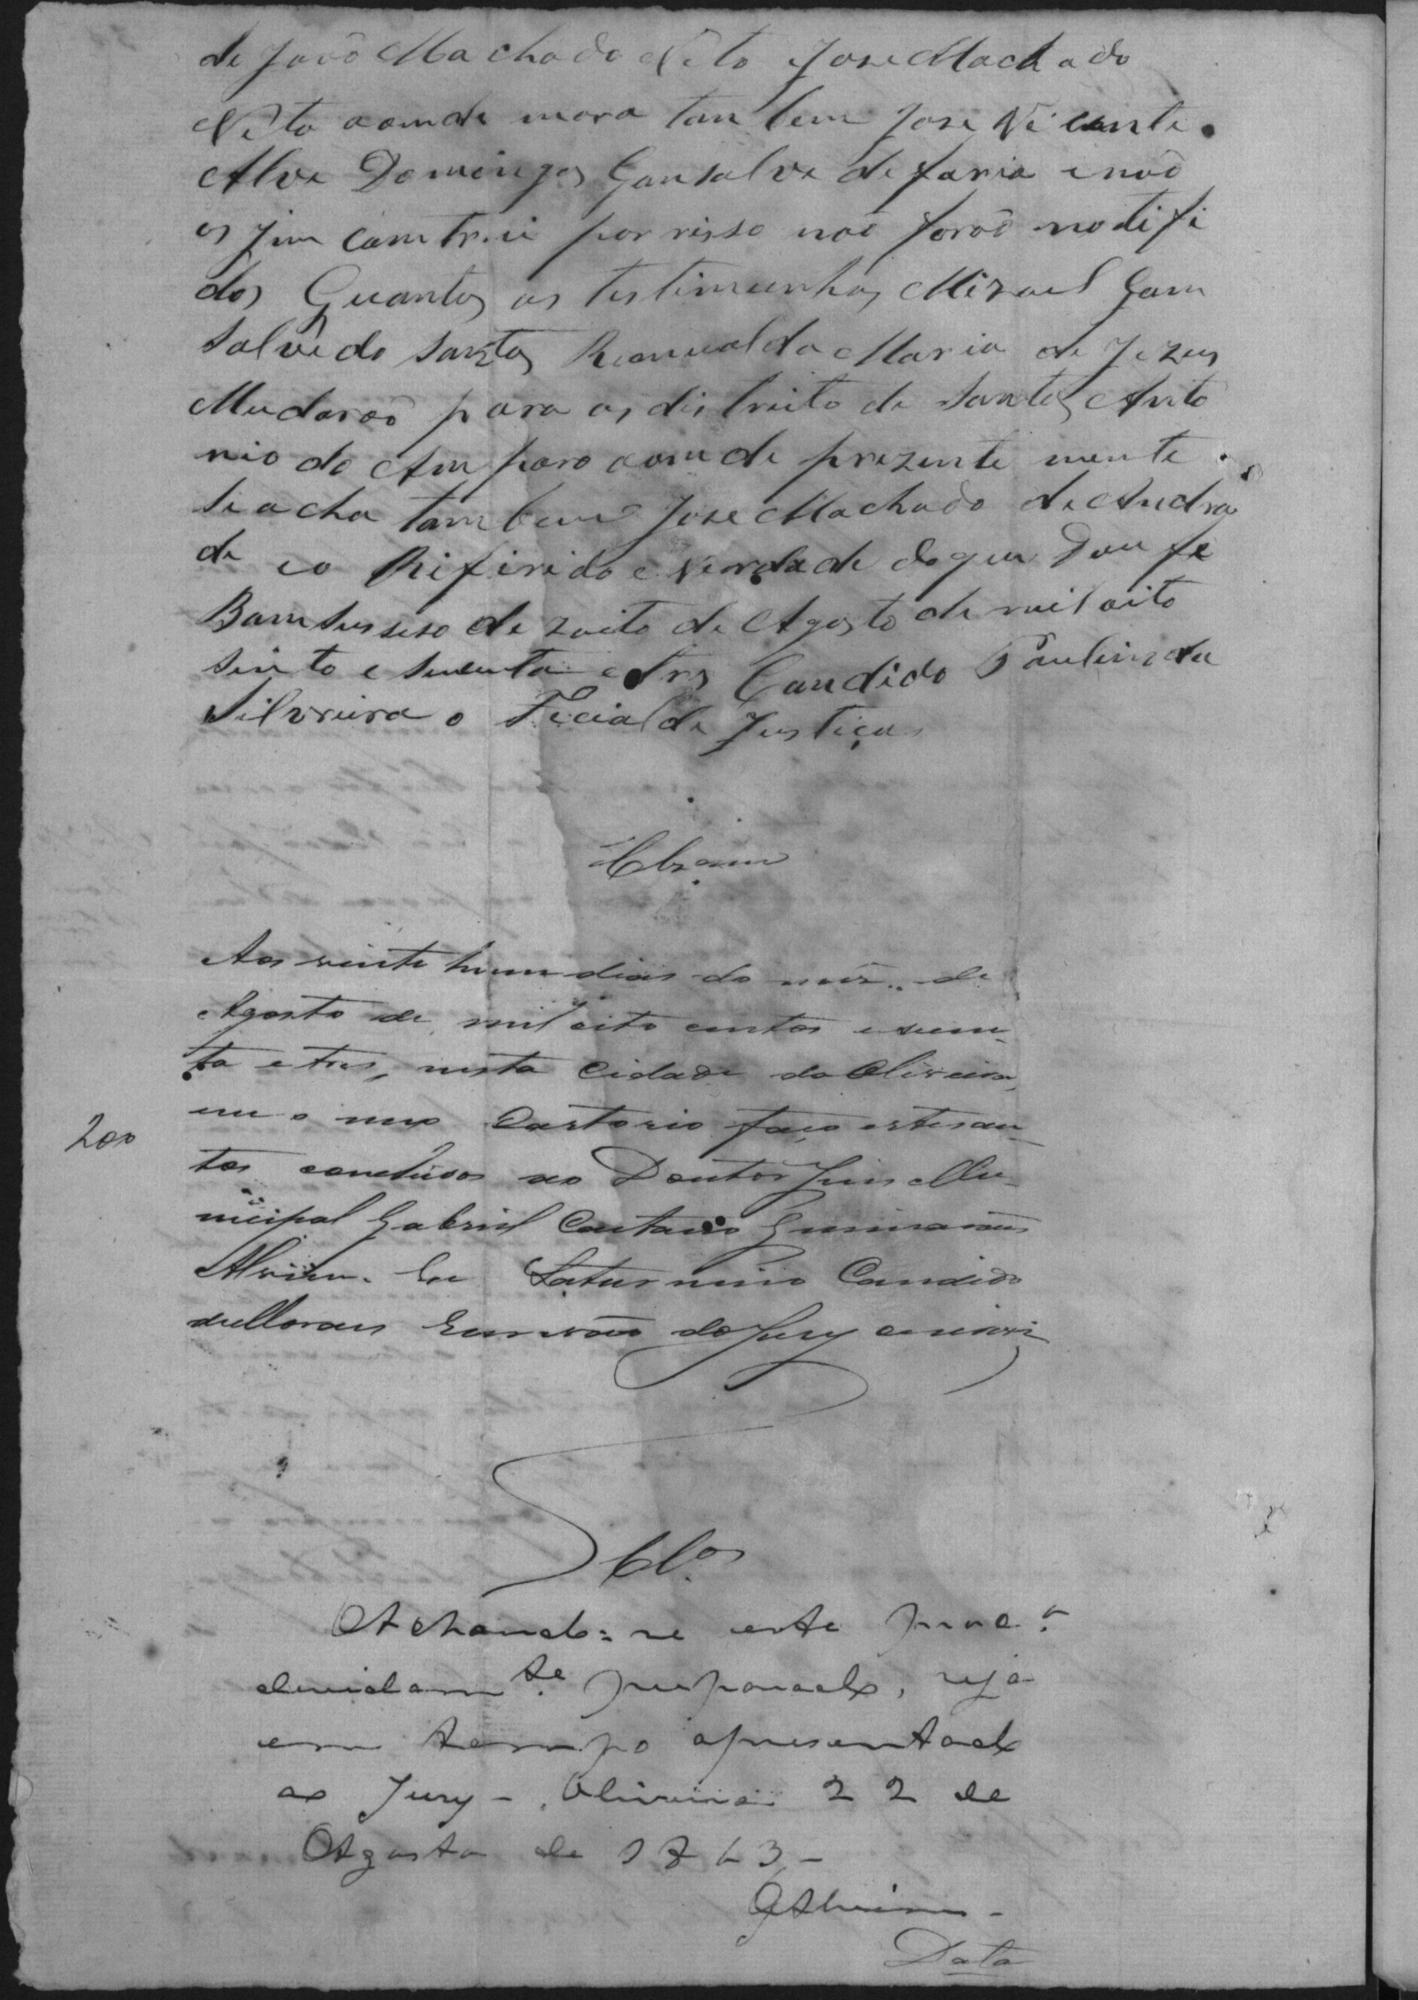 de João Machado Neto Jose Machado
Neto aomde mora tanbem Jose Vicente
Alve Domingos Gonsalve de faria e naõ
os jim comtrei por risso naõ foraõ nodifi
dos Quantos as testimunhas Mizael Gom
salve do Santos Romualda Maria de Jezus
Mudaraõ para os distrito de Santos Anto
nio do Amparo aomde prezente mente
se acha tambem Jose Machado de Andra
de eo Rifirido e verdade do que Dou fe
Bomsusseso dezoito de Agosto de mil oito
sento e secenta e tres Candido Paulino da
Silveira o Ficial de Justiça
Clzam
Aos vinte hum dias do mes de
Agosto de mil oito centos e secen-
ta e tres, nesta Cidade da Oliveira,
em o meo Cartorio faço estes au-
200
tos concluzos ao Doutor Juis Mu-
nicipal Gabriel Caetano Guimarães
Alvim. Eu Saturnino Candido
de Moraes Escrivão do Jury escrevi
Clos
Achando-se este proc.o
devidamte. preparado, seja
em tempo apresentado
ao Jury - Oliveira 22 de
Agosto de 1863 -
GAlvim -
Data